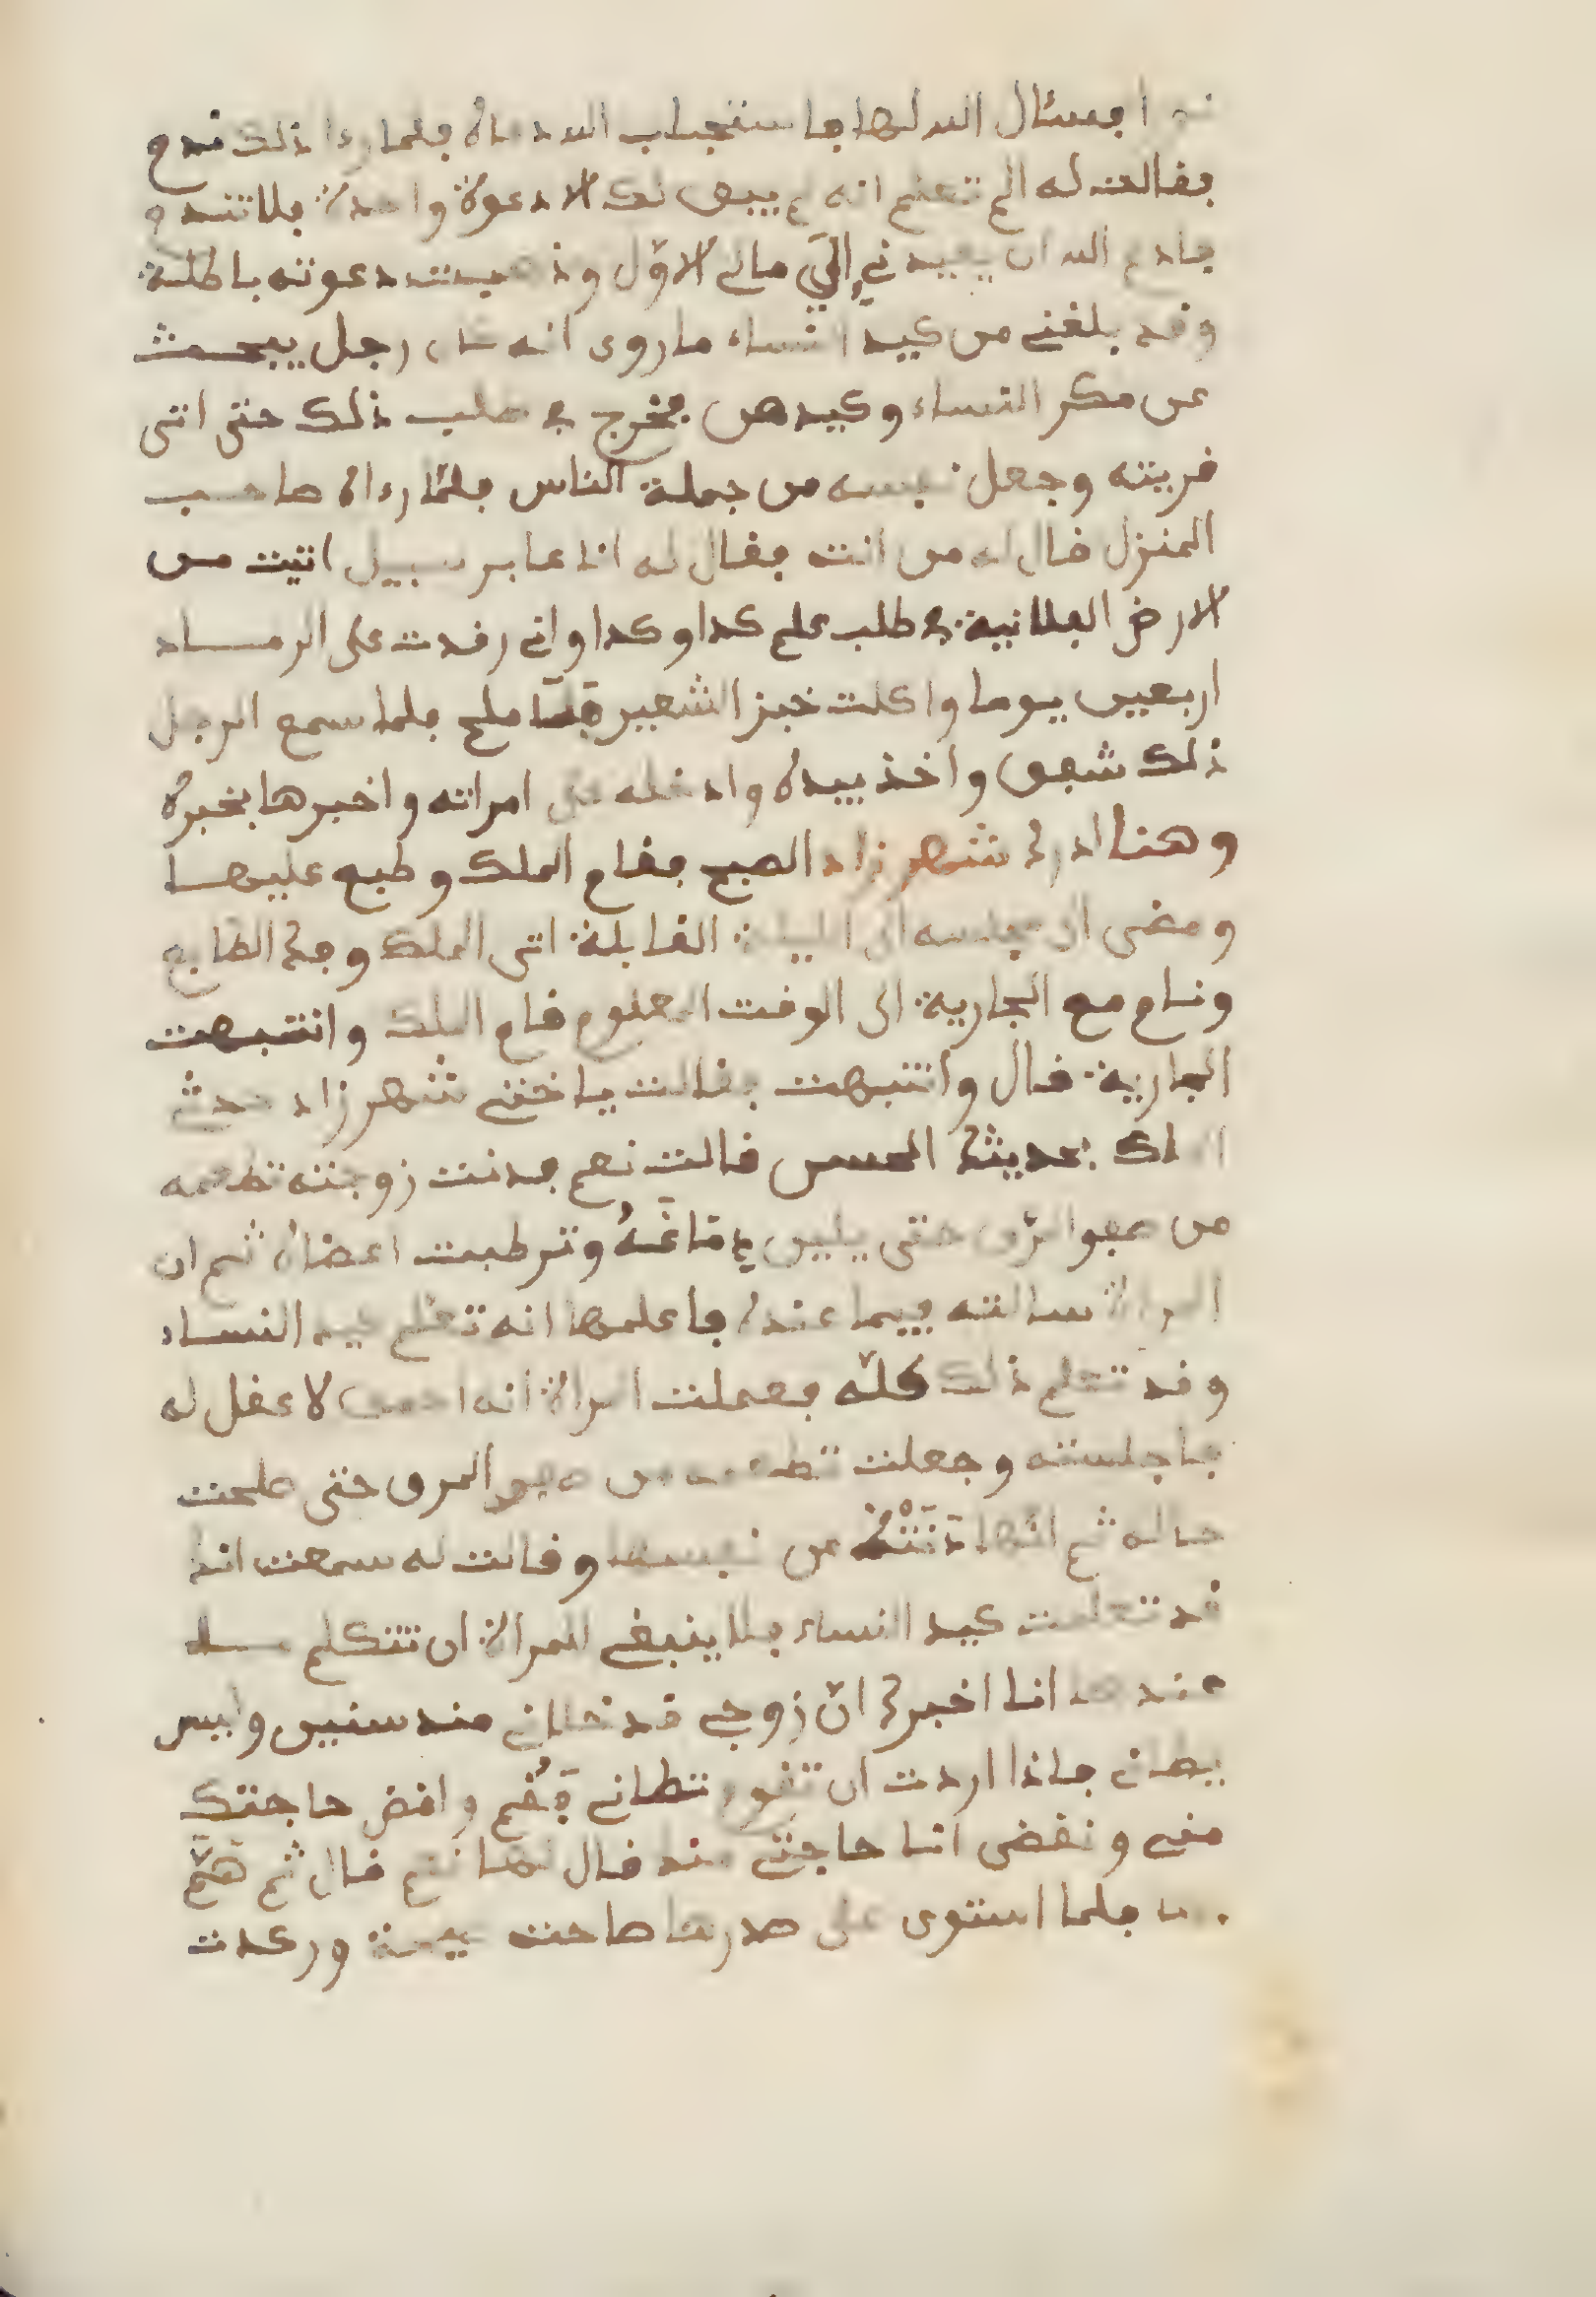 فسئال الله لها فاستجاب الله دعاه فلما رءا ذلك ندم
فقالت له الم تعلم انه لم يبق لك الا دعوة واحدة فلا تندم
فادع الله ان يعيدني إليَ حالي الاوّل وذهبت دعوته باطلة
وقد بلغني من كيد النساء ما روى انه كان رجل يبحث
عن مكر النساء وكيدهن فخرج في طلب ذلك حتى اتى
قريته وجعل نفسه من جملة الناس فلمّا رءاه صاحب
المنزل قال له من انت فقال له انا عابر سبيل اتيت من
الارض الفلانية في طلب علم كدا وكدا واني رقدت على الرماد
اربعين يوما واكلت خبز الشعير ملح فلما سمع الرجل
ذلك شفق واخذ بيده وادخله على امراته واخبرها بخبره
وهنا ادرك شهرزاد الصبح فقام الملك وطبع عليها
ومضى الى مجلسه الى الليلة القابلة اتى الملك وفك الطابع
ونام مع الجارية الى الوقت المعلوم قام الملك وانتبهت
الجارية قال وانتبهت فقالت ياختي شهرزاد حدث
الملك بحديثك الحسن قالت نعم فدنت زوجته تطعمه
من صفو المرق حتى يلين دماغهُ وترطبت اعضاه ثم ان
المراة سالته فيما عنده فاعلمها انه تعلم كيد النساء
وقد تعلم ذلك كلّه فعملت المراة انه احمق لا عقل له
فاجلسته وجعلت تطعمه من صفو المرق حتى صلحت
حاله ثم انّها عن نفسها وقالت له سمعت انك
قد تعلمت كيد النساء فلا ينبغي للمراة ان تتكلم
عندها انا اخبرك انّ زوجي قد خلاني مند سنين وليس
يطاني فاذا اردت ان تقوم تطاني فقُم واقض حاجتك
مني ونقضى انا حاجتي منك قال لها نعم قال ثم همَّ
بها فلما استوى على صدرها صاحت صيحة وركدت